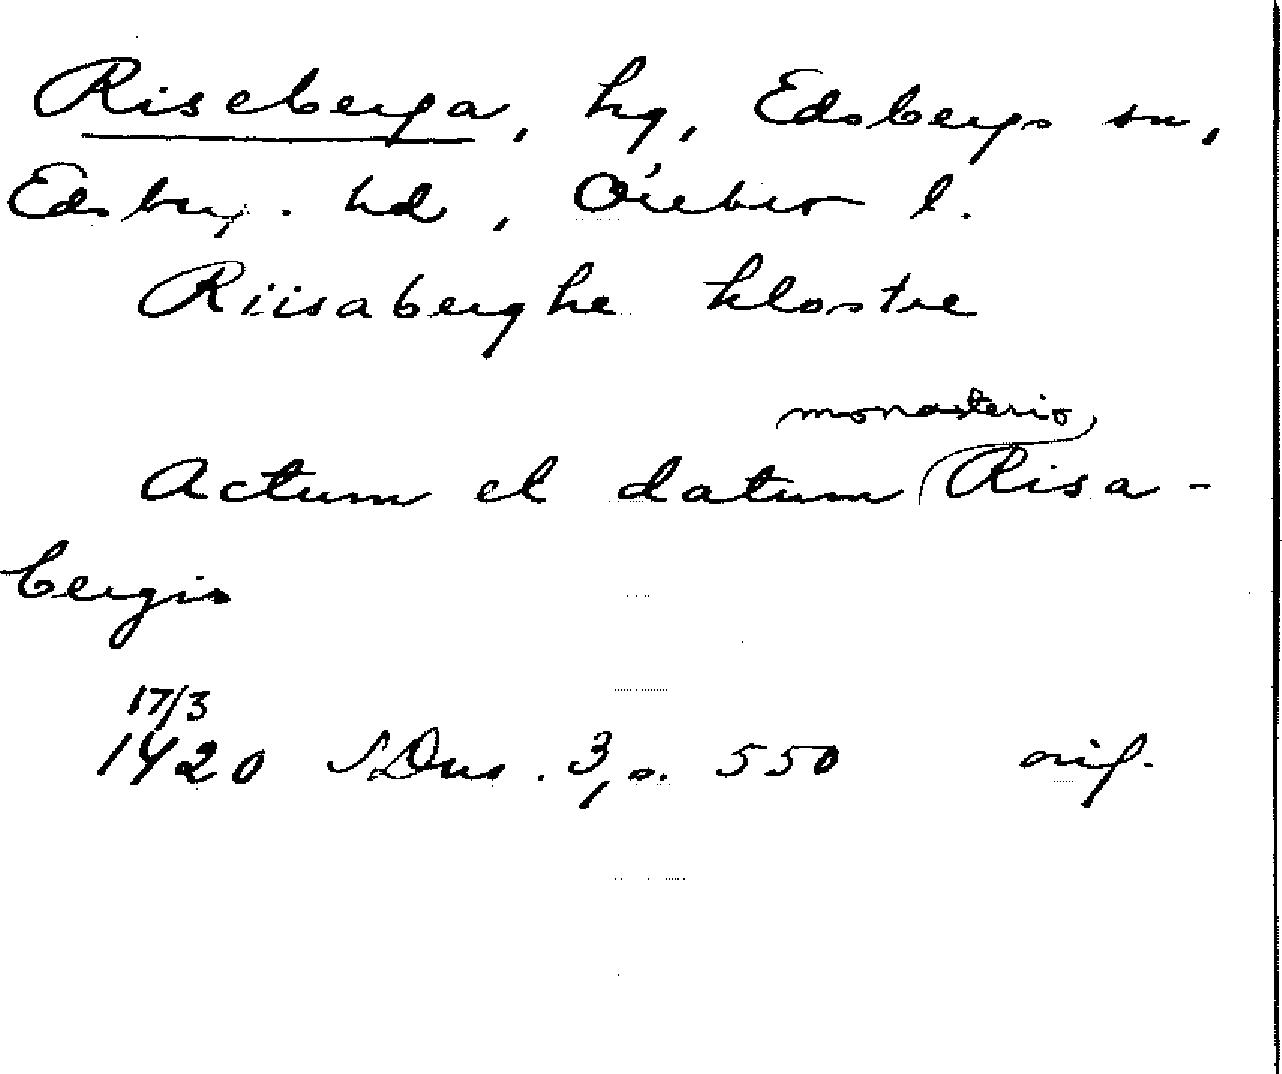 Riseberga, hg, Edsbergs sn,
Edsberg. hd, Örebro l.
Riisaberghe klostre
monasterio
Actum et datum Risa-
bergis
17/3
1420 SDns. 3, s. 550 orig.